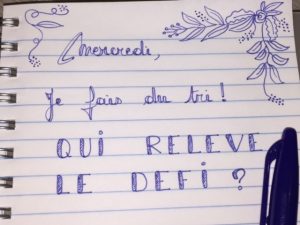 Mercredi,
Je fais du tri !
QUI RELEVE
LE DEFI ?